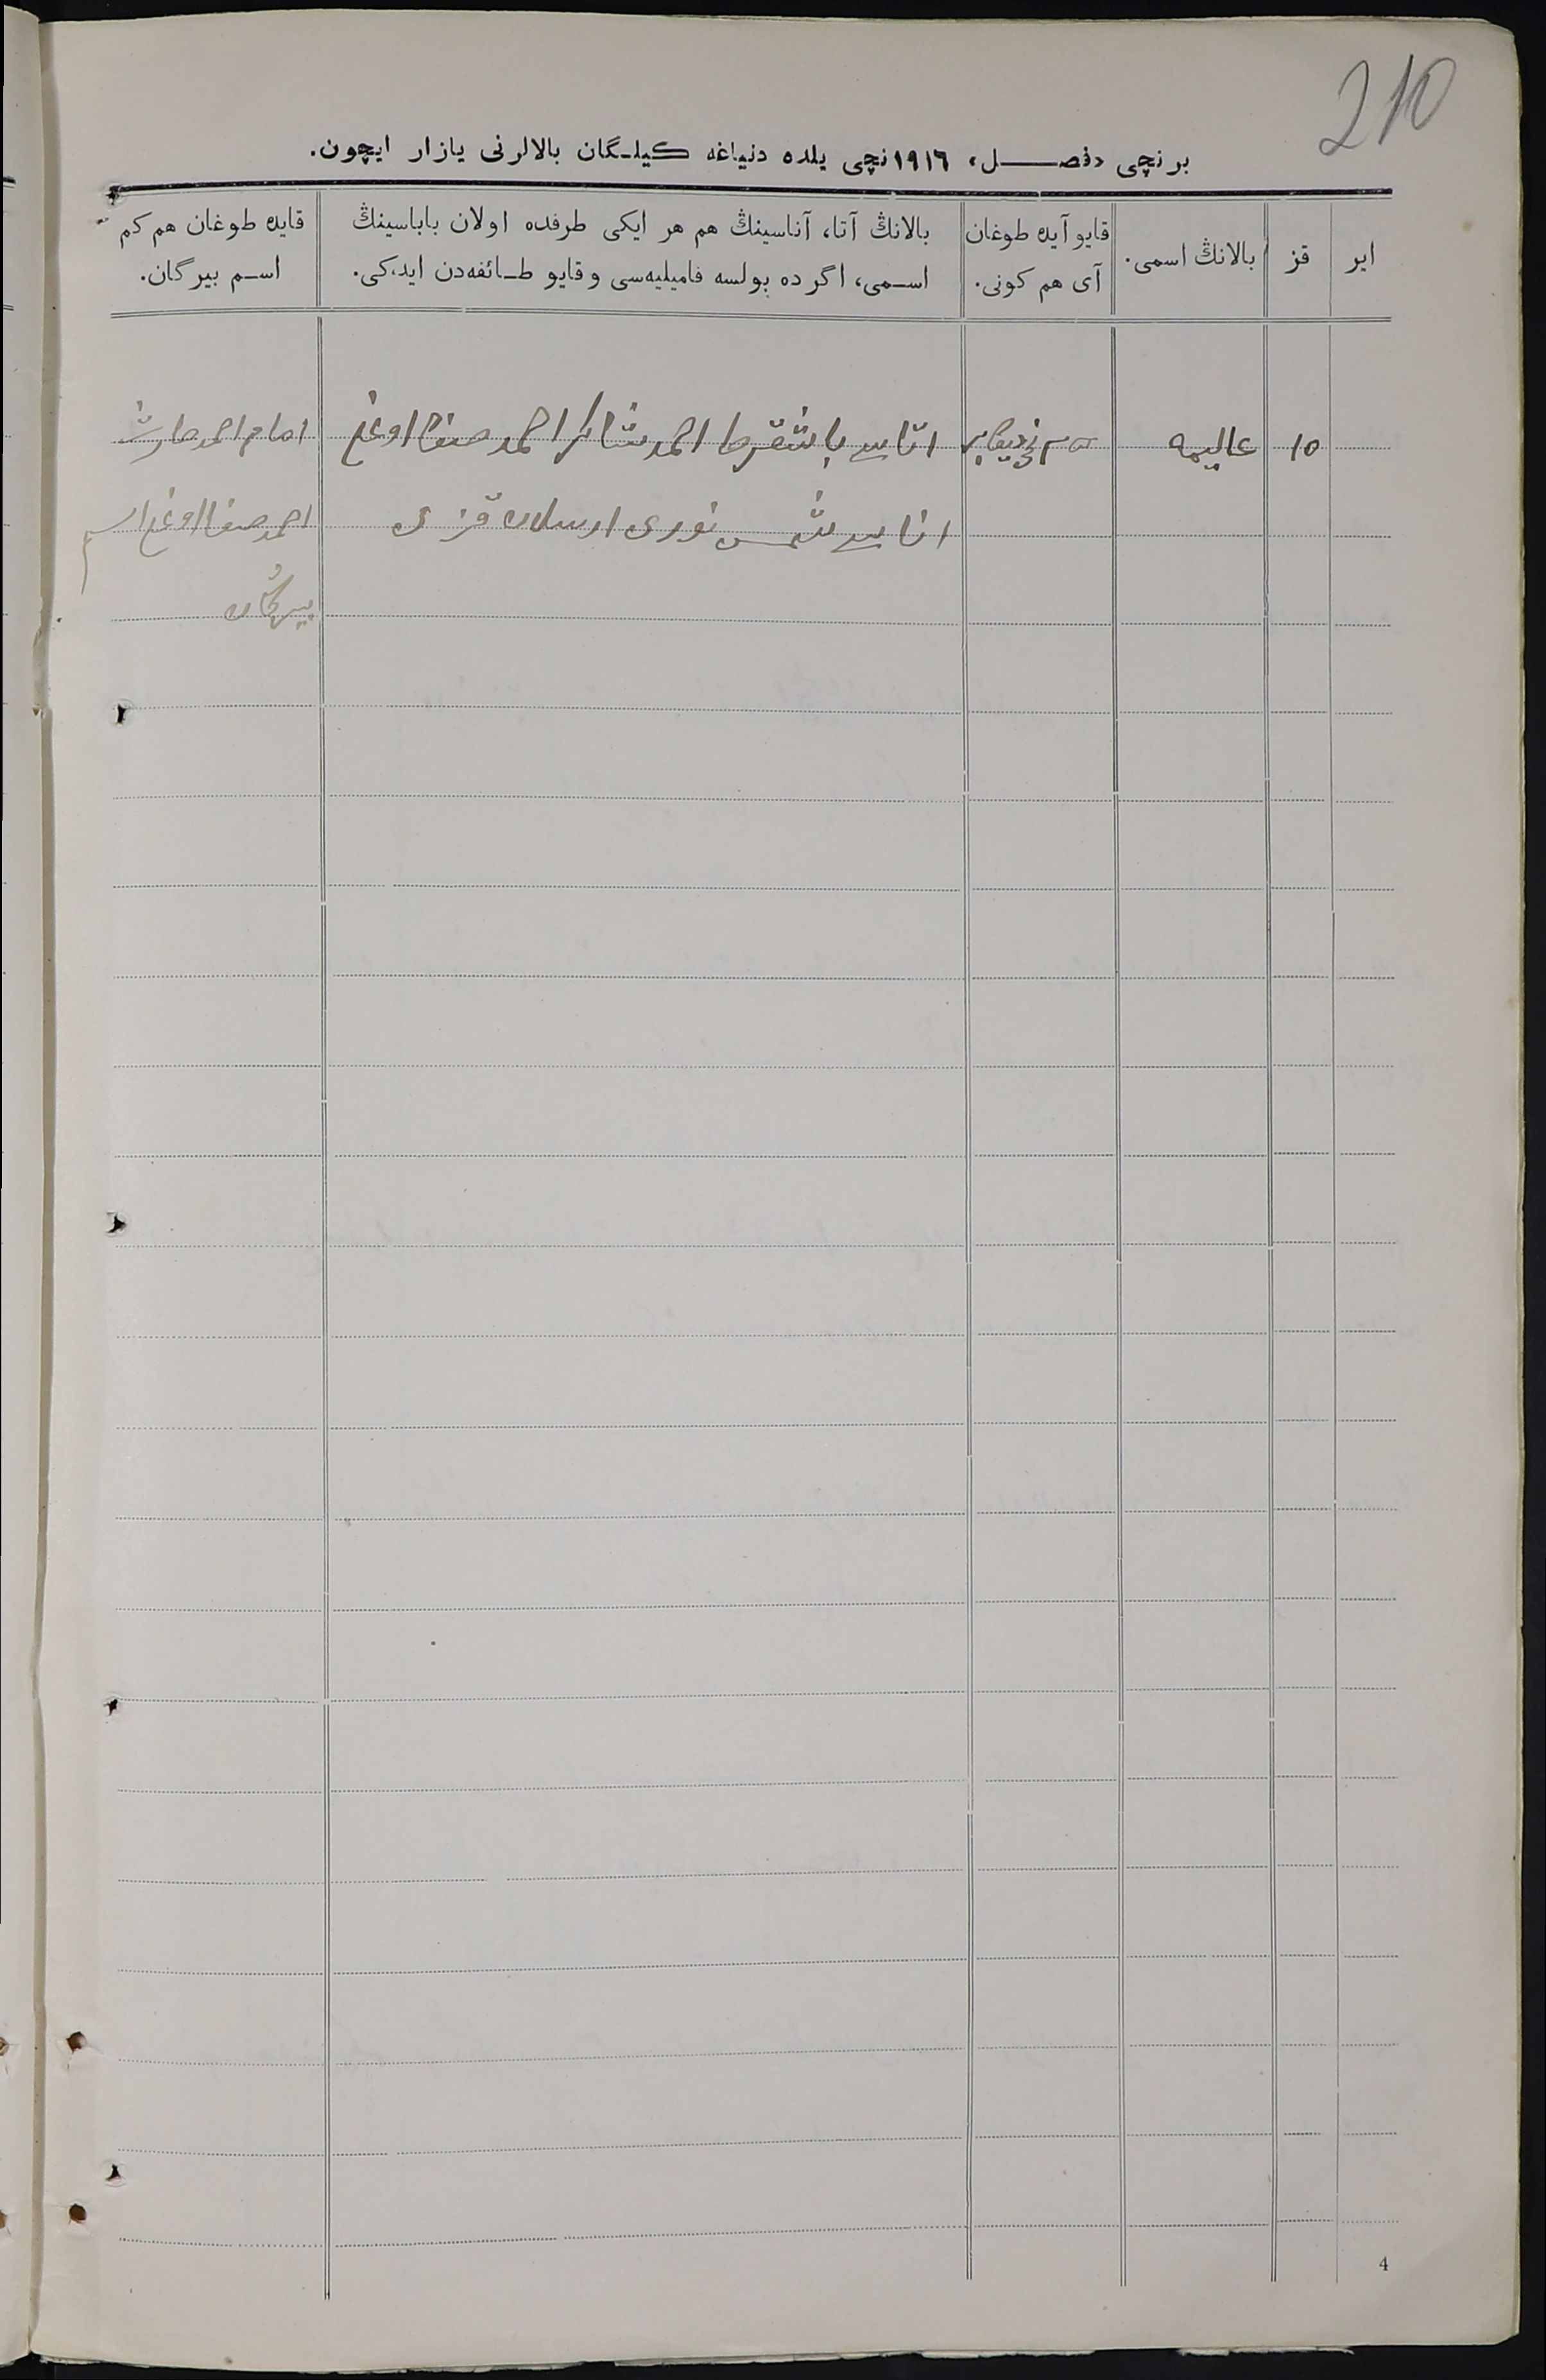 210
برنچی «فصل» ١٩١٦نچی یلده دنیاغه کیلگان بالالرنی یازار ایچون.
ایر
قز
بالانڭ اسمی.
قایو آیده طوغان
آی هم کونی.
بالانڭ آتا، آناسینڭ هم هر ایکی طرفده اولان باباسینڭ
اسمی، اگر ده بولسه فامیلیه‌سی و قایو طائفه‌دن ایدکی.
قایده طوغان هم کم
اسم بیرگان.
١٥
عالیمه
دیکابر
اتاسی باشقرط احمد شاکر احمد صفا اوغلی
امام احمد حارث
اناسی شمس نوری ارسلان قزی
احمد صفا اوغلی اسم
بیرگان
4